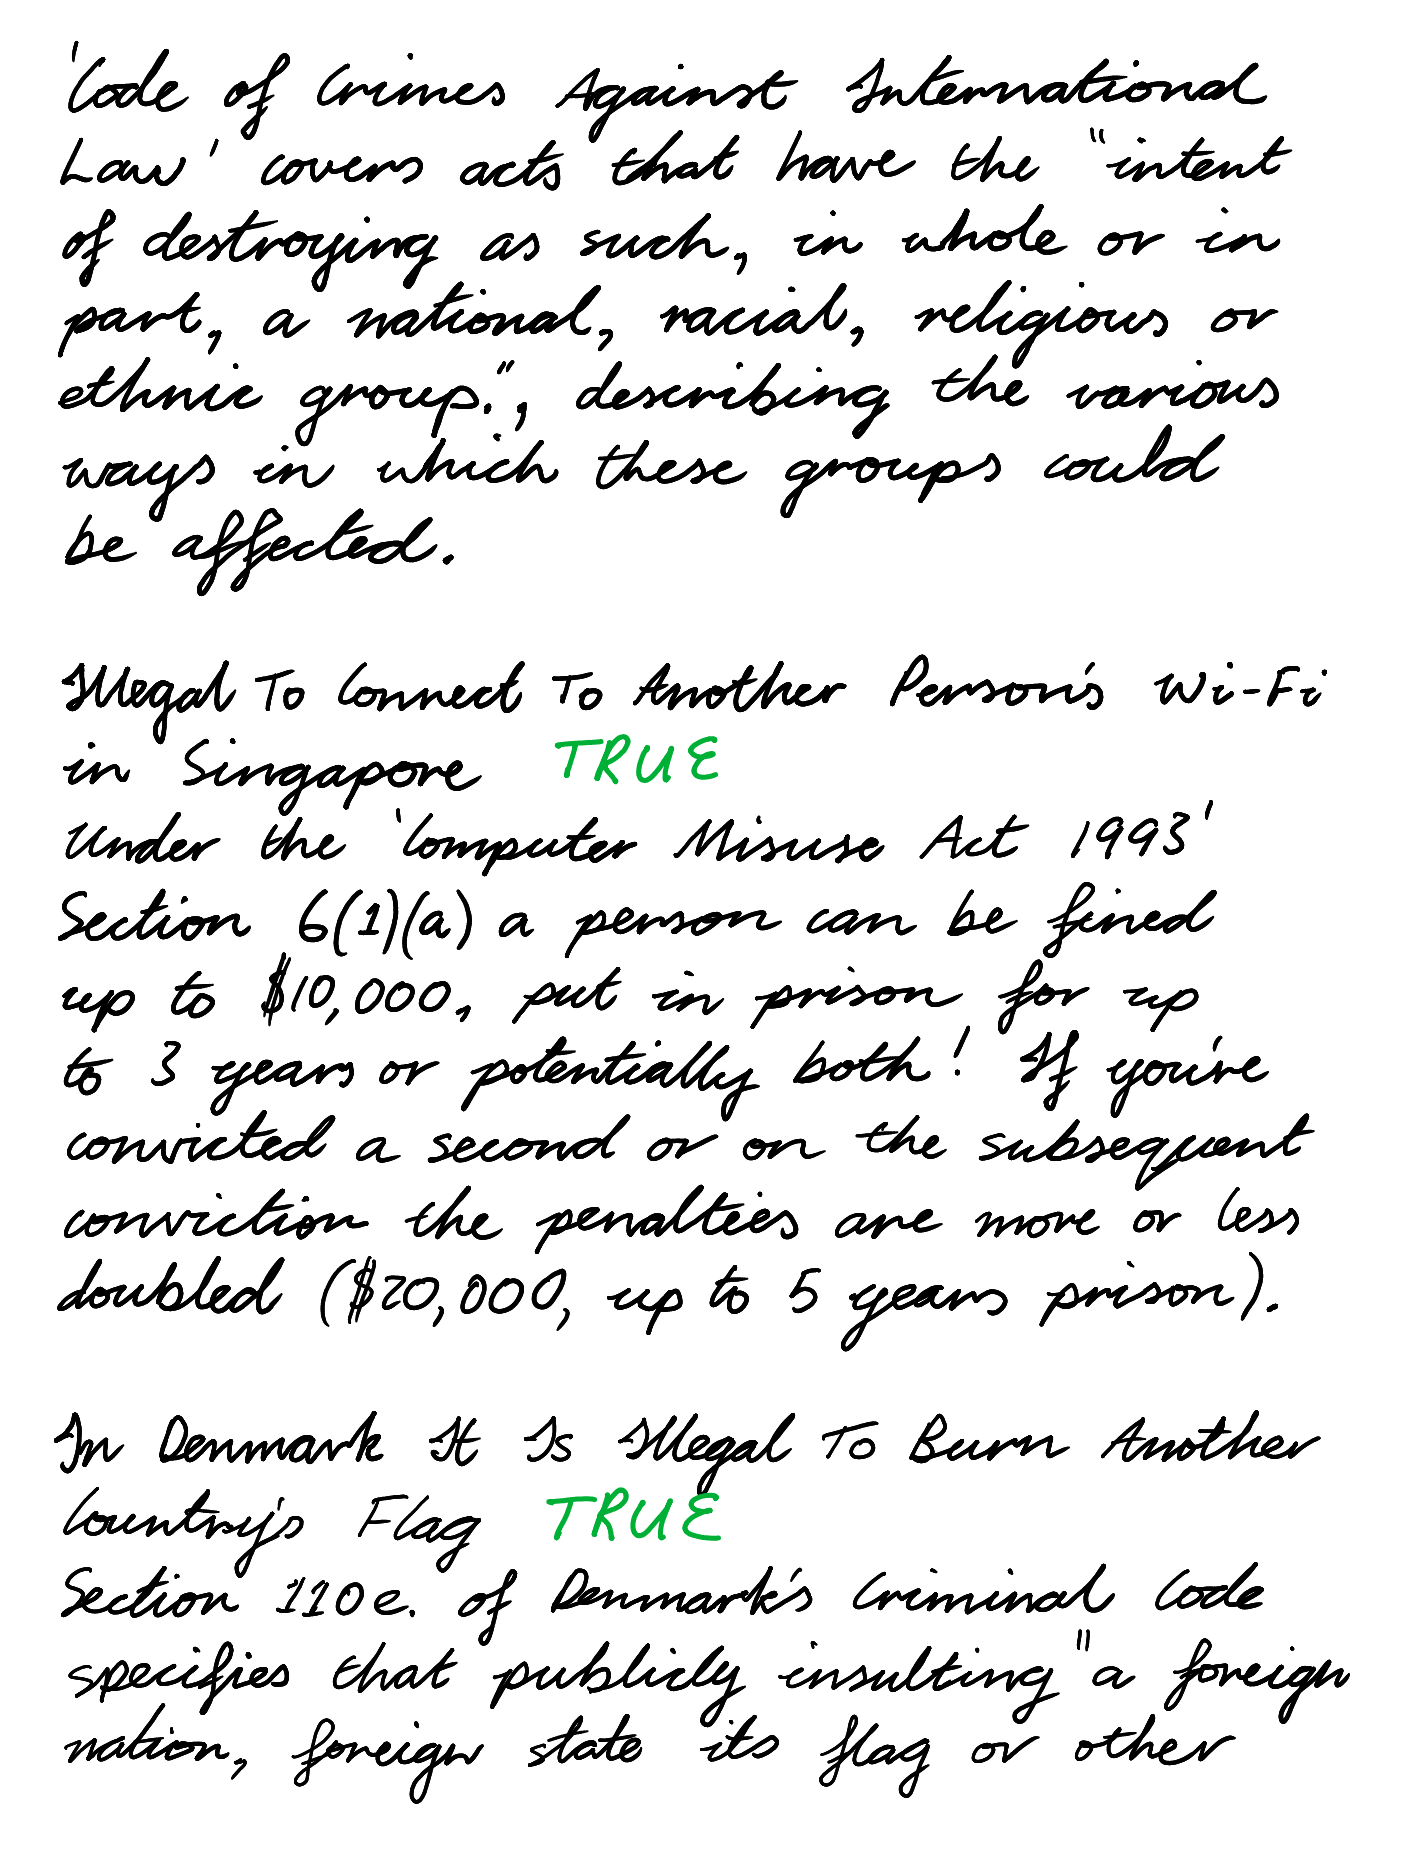 'Code of Crimes Against International
Law' covers acts that have the "intent
of destroying as such, in whole or in
part, a national, racial, religious or
ethnic group.", describing the various
ways in which these groups could
be affected.
Illegal To Connect To Another Person's Wi-Fi
in Singapore TRUE
Under the 'Computer Misuse Act 1993'
Section 6(1)(a) a person can be fined
up to $10,000, put in prison for up
to 3 years or potentially both! If you're
convicted a second or on the subsequent
conviction the penalties are more or less
doubled ($20,000, up to 5 years prison).
In Denmark It Is Illegal To Burn Another
Country's Flag TRUE
Section 110e. of Denmark's Criminal Code
specifies that publicly insulting "a foreign
nation, foreign state its flag or other